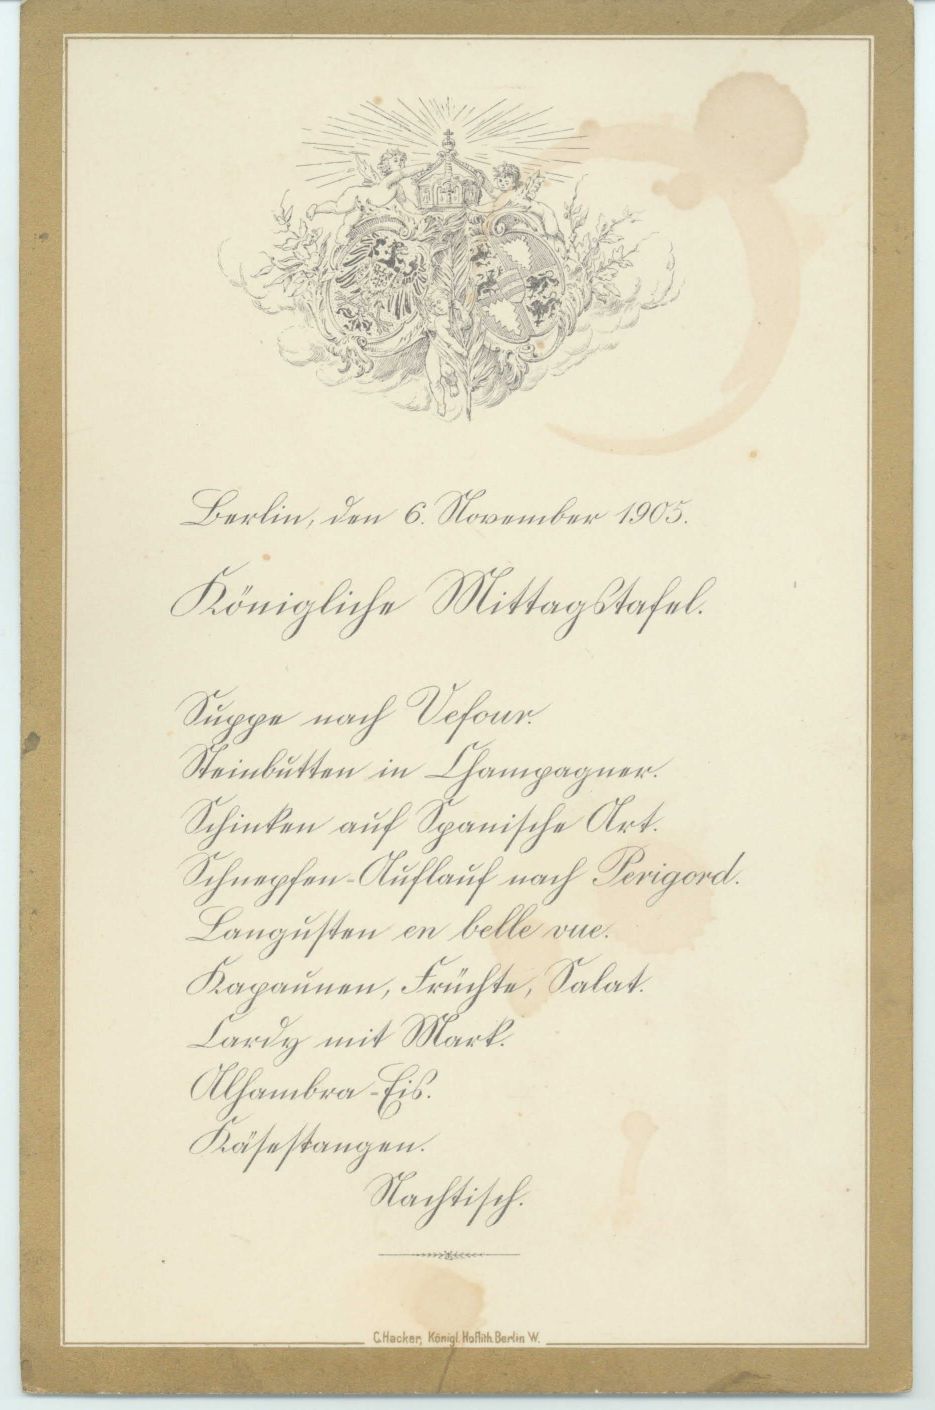 Berlin, den 6. November 1905.
Königliche Mittagstafel.
Suppe nach Vefour.
Steinbutten in Champagner.
Schinken auf Spanische Art.
Schnepfen-Auflauf nach Perigord.
Langusten en belle vue.
Kapaunen, Früchte, Salat.
Cardy mit Mark.
Alhambra-Eis.
Käsestangen.
Nachtisch.
C. Hacker, Königl. Hoflith. Berlin W.